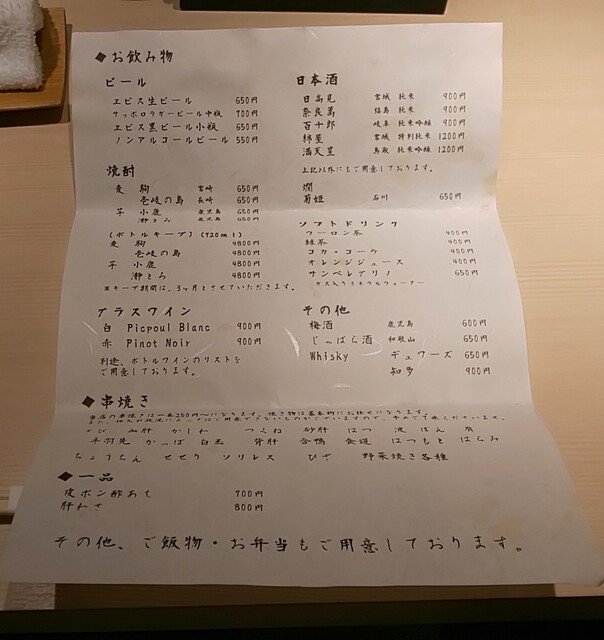 ◆お飲み物
ビール
ヱビス生ビール 650円
サッポロラガービール中瓶 700円
ヱビス黒ビール小瓶 650円
ノンアルコールビール 550円
焼酎
麦 駒 宮崎 650円
壱岐の島 長崎 650円
芋 小鹿 鹿児島 650円
灘とろ 鹿児島 650円
(ボトルキープ) (720ml)
麦 駒 4800円
壱岐の島 4800円
芋 小鹿 4800円
灘とろ 4800円
※キープ期間は、3ヶ月とさせていただきます。
グラスワイン
白 Picpoul Blanc 900円
赤 Pinot Noir 900円
別途、ボトルワインのリストを
ご用意しております。
日本酒
日高見 宮城 純米 900円
奈良萬 福島 純米 900円
百十郎 岐阜 純米吟醸 900円
綿屋 宮城 特別純米 1200円
満天星 鳥取 純米吟醸 1200円
上記以外にもご用意しております。
燗
菊姫 石川 650円
ソフトドリンク
ウーロン茶 400円
緑茶 400円
コカ・コーラ 400円
オレンジジュース 400円
サンペレグリノ 650円
ガス入りミネラルウォーター
その他
梅酒 鹿児島 600円
じゃばら酒 和歌山 650円
Whisky デュワーズ 650円
知多 900円
◆串焼き
当店の串焼きは一本250円〜になります。焼き物は基本的にお任せになります。
さび 血肝 かしわ つくね 砂肝 はつ 波 ぼん 角
手羽先 かっぱ 白玉 背肝 合鴨 食道 はつもと はらみ
ちょうちん せせり ソリレス ひざ 野菜焼き各種
◆一品
皮ポン酢あえ 700円
肝わさ 800円
その他、ご飯物・お弁当もご用意しております。